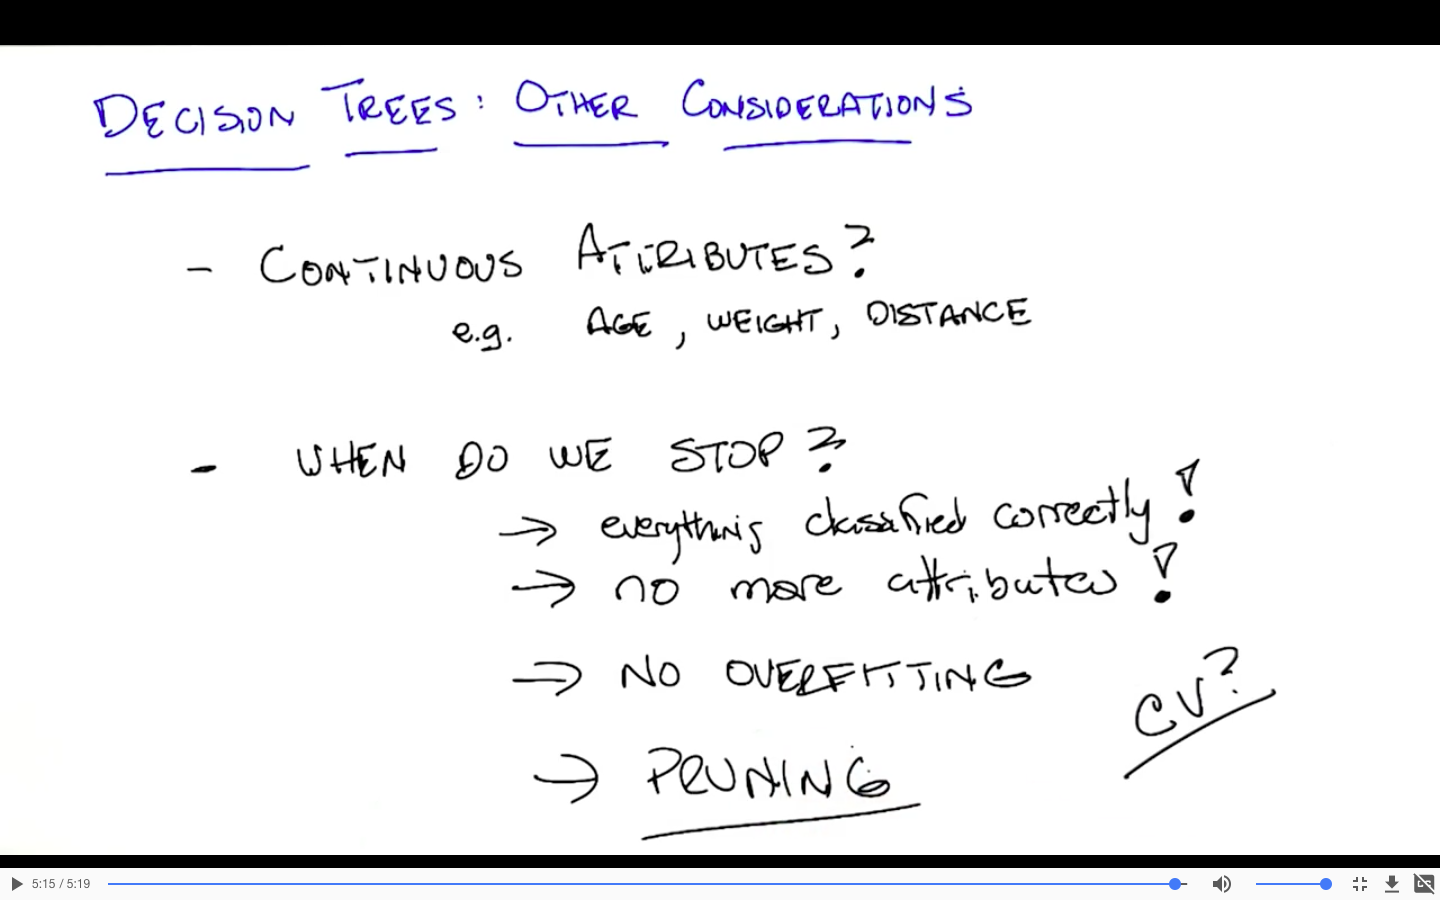 DECISION TREES: OTHER CONSIDERATIONS
- CONTINUOUS ATTRIBUTES?
e.g. AGE, WEIGHT, DISTANCE
- WHEN DO WE STOP?
→ everything classified correctly!
→ no more attributes!
→ NO OVERFITTING
CV?
→ PRUNING
5:15 / 5:19
CC